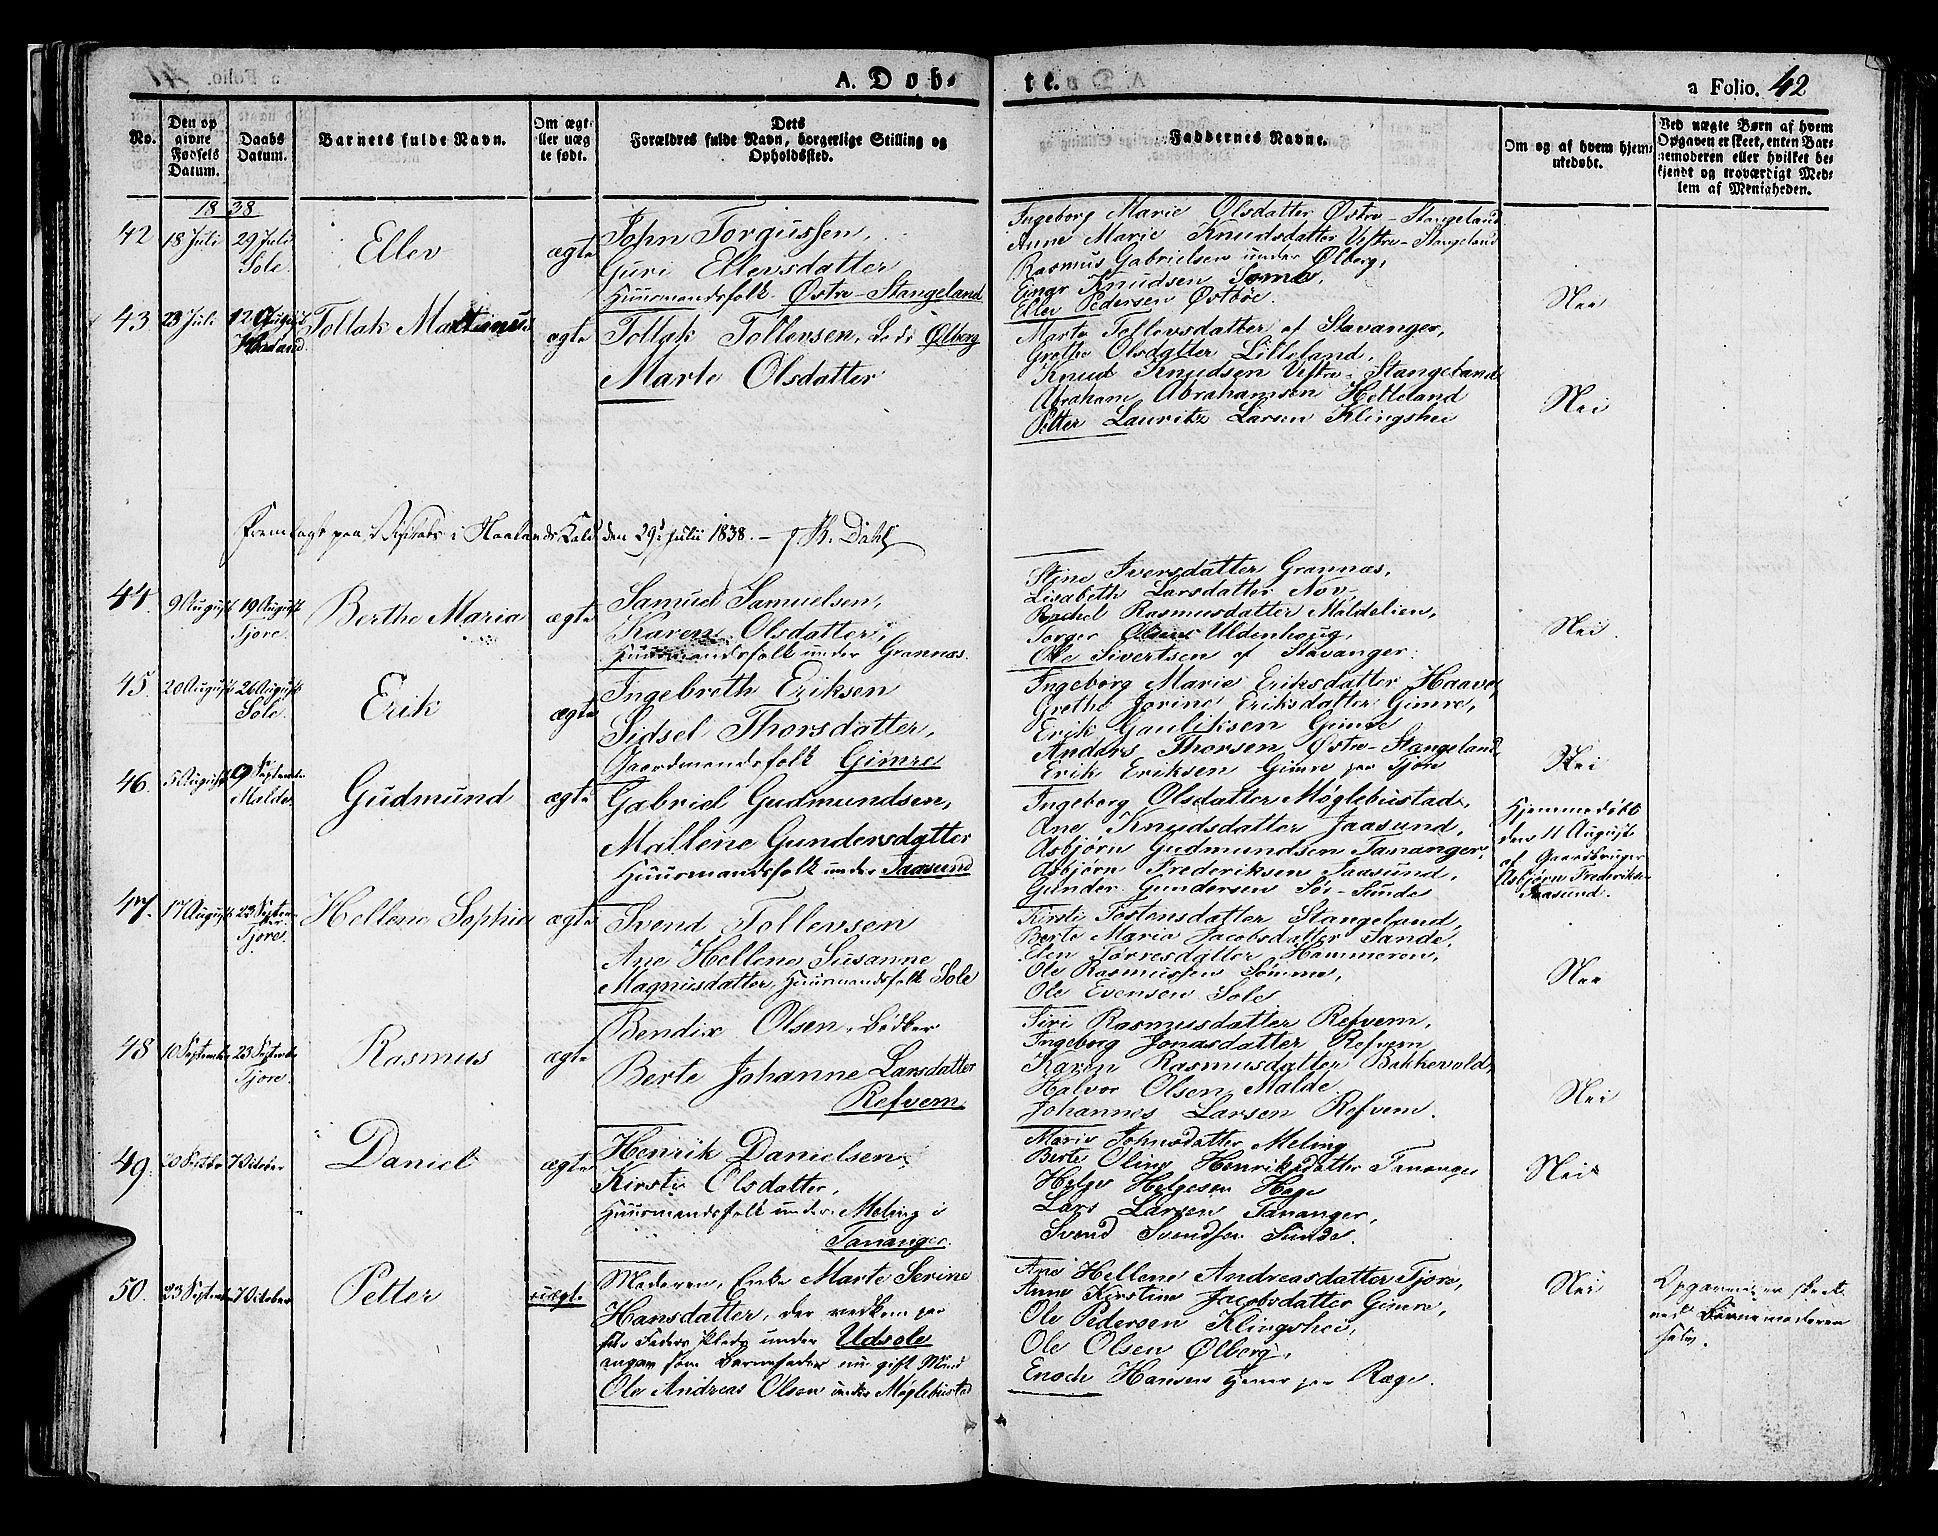 A. Døb-
te.
a Folio. 42
No.
Den op
givne
Fødsels
Datum.
Daabs
Datum.
Barnets fulde Navn.
Om ægt
eller uæg
te født.
Dets
Forældres fulde Navn, borgerlige Stilling og
Opholdssted.
Faddernes Navne.
Om og af hvem hjem-
medøbt.
Ved uægte Børn af hvem
Opgaven er skeet, enten Bar-
nemoderen eller hvilket be-
kjendt og troværdigt Med-
lem af Menigheden.
1838
42
18 Juli
29 Juli
Sole.
Ellev
ægte
John Torgussen,
Guri Ellevsdatter
Huusmandsfolk Østre-Stangeland
Ingeborg Marie Olsdatter Østre-Stangeland
Anne Marie Knudsdatter Vestre-Stangeland
Rasmus Gabrielsen under Ølberg,
Einar Knudsen Somme,
Ellev Pedersen Østbøe.
Nei
43
23 Juli
12 August
Haaland.
Tollak Martinus
ægte
Tollak Tollevsen, Leds Ølberg
Marte Olsdatter
Marte Tollevsdatter af Stavanger,
Grethe Olsdatter Lilleland,
Knud Knudsen Vestre-Stangeland
Abraham Abrahamsen Helleland
Petter Lauritz Larsen Klingshei
Nei
Fremlagt paa Visitats i Haalands Kald den 29de Julii 1838. – J. K. Dahl
44.
9 August
19 August
Tjore.
Berthe Maria
ægte
Samuel Samuelsen,
Karen Olsdatter,
Huusmandsfolk under Grannæs.
Stine Iversdatter Grannæs,
Lisabeth Larsdatter Nov,
Rachel Rasmusdatter Maldelien,
Torger Olsen Uldenhoug,
Ole Sivertsen af Stavanger.
Nei.
45.
20 August
26 August
Sole.
Erik
ægte
Ingebreth Eriksen
Sidsel Thorsdatter,
Gaardmandsfolk Gimre
Ingeborg Marie Eriksdatter Haave,
Grethe Jorine Eriksdatter Gimre,
Erik Gauliksen Gimre
Anders Thorsen Østre-Stangeland,
Erik Eriksen Gimre paa Tjore
Nei
46.
5 August
9 Septembr
Malde.
Gudmund
ægte
Gabriel Gudmundsen,
Mallene Gundersdatter
Huusmandsfolk under Jaasund
Ingeborg Olsdatter Møglebustad,
Ane Knudsdatter Jaasund,
Asbjørn Gudmundsen Tananger,
Asbjørn Frederiksen Jaasund,
Gunder Gundersen Sør-Sunde
Hjemmedøbt
den 11 August
af Gaardbruger
Asbjørn Frederiks-
Jaasund.
47.
17 August
23 Septem-
ber
Tjore.
Hellene Sophia
ægte
Svend Tollevsen
Ane Hellene Susanne
Magnusdatter, Huusmandsfolk Sole
Kirsti Tostensdatter Stangeland,
Berte Maria Jacobsdatter Sande,
Elen Tørresdatter Hammeren,
Ole Rasmussen Sømme,
Ole Evensen Sole
Nei
48
10 September
23 September
Tjore.
Rasmus
ægte
Bendix Olsen, Bødker
Berte Johanne Larsdatter
Refvem.
Siri Rasmusdatter Refvem,
Ingeborg Jonasdatter Refvem
Karen Rasmusdatter Bakkevold,
Halvor Olsen Malde
Johannes Larsen Refvem.
Nei
49.
20 Septbr
7 October
Daniel
ægte
Henrik Danielsen,
Kirsti Olsdatter,
Huusmandsfolk under Meling i
Tananger.
Marie Johnsdatter Meling
Berte Oline Henriksdatter Tananger
Helge Helgesen Hage
Lars Larsen Tananger,
Svend Svendsen Sunde.
Nei
50.
23 September
7 October
Petter
uægte
Moderen, Enke Marte Serine
Hansdatter, der vedkom paa
sin Faders Plads under Udsole
angav som Barnefader nu gift Mand
Ole Andreas Olsen under Møglebustad
Ane Hellene Andreasdatter Tjore,
Anne Kirstine Jacobsdatter Gimre,
Ole Pedersen Klingshei,
Ole Olsen Ølberg,
Enoch Hansen tjener paa Ræge.
Nei
Opgaven er skeet
ved Barnemoderen
selv.